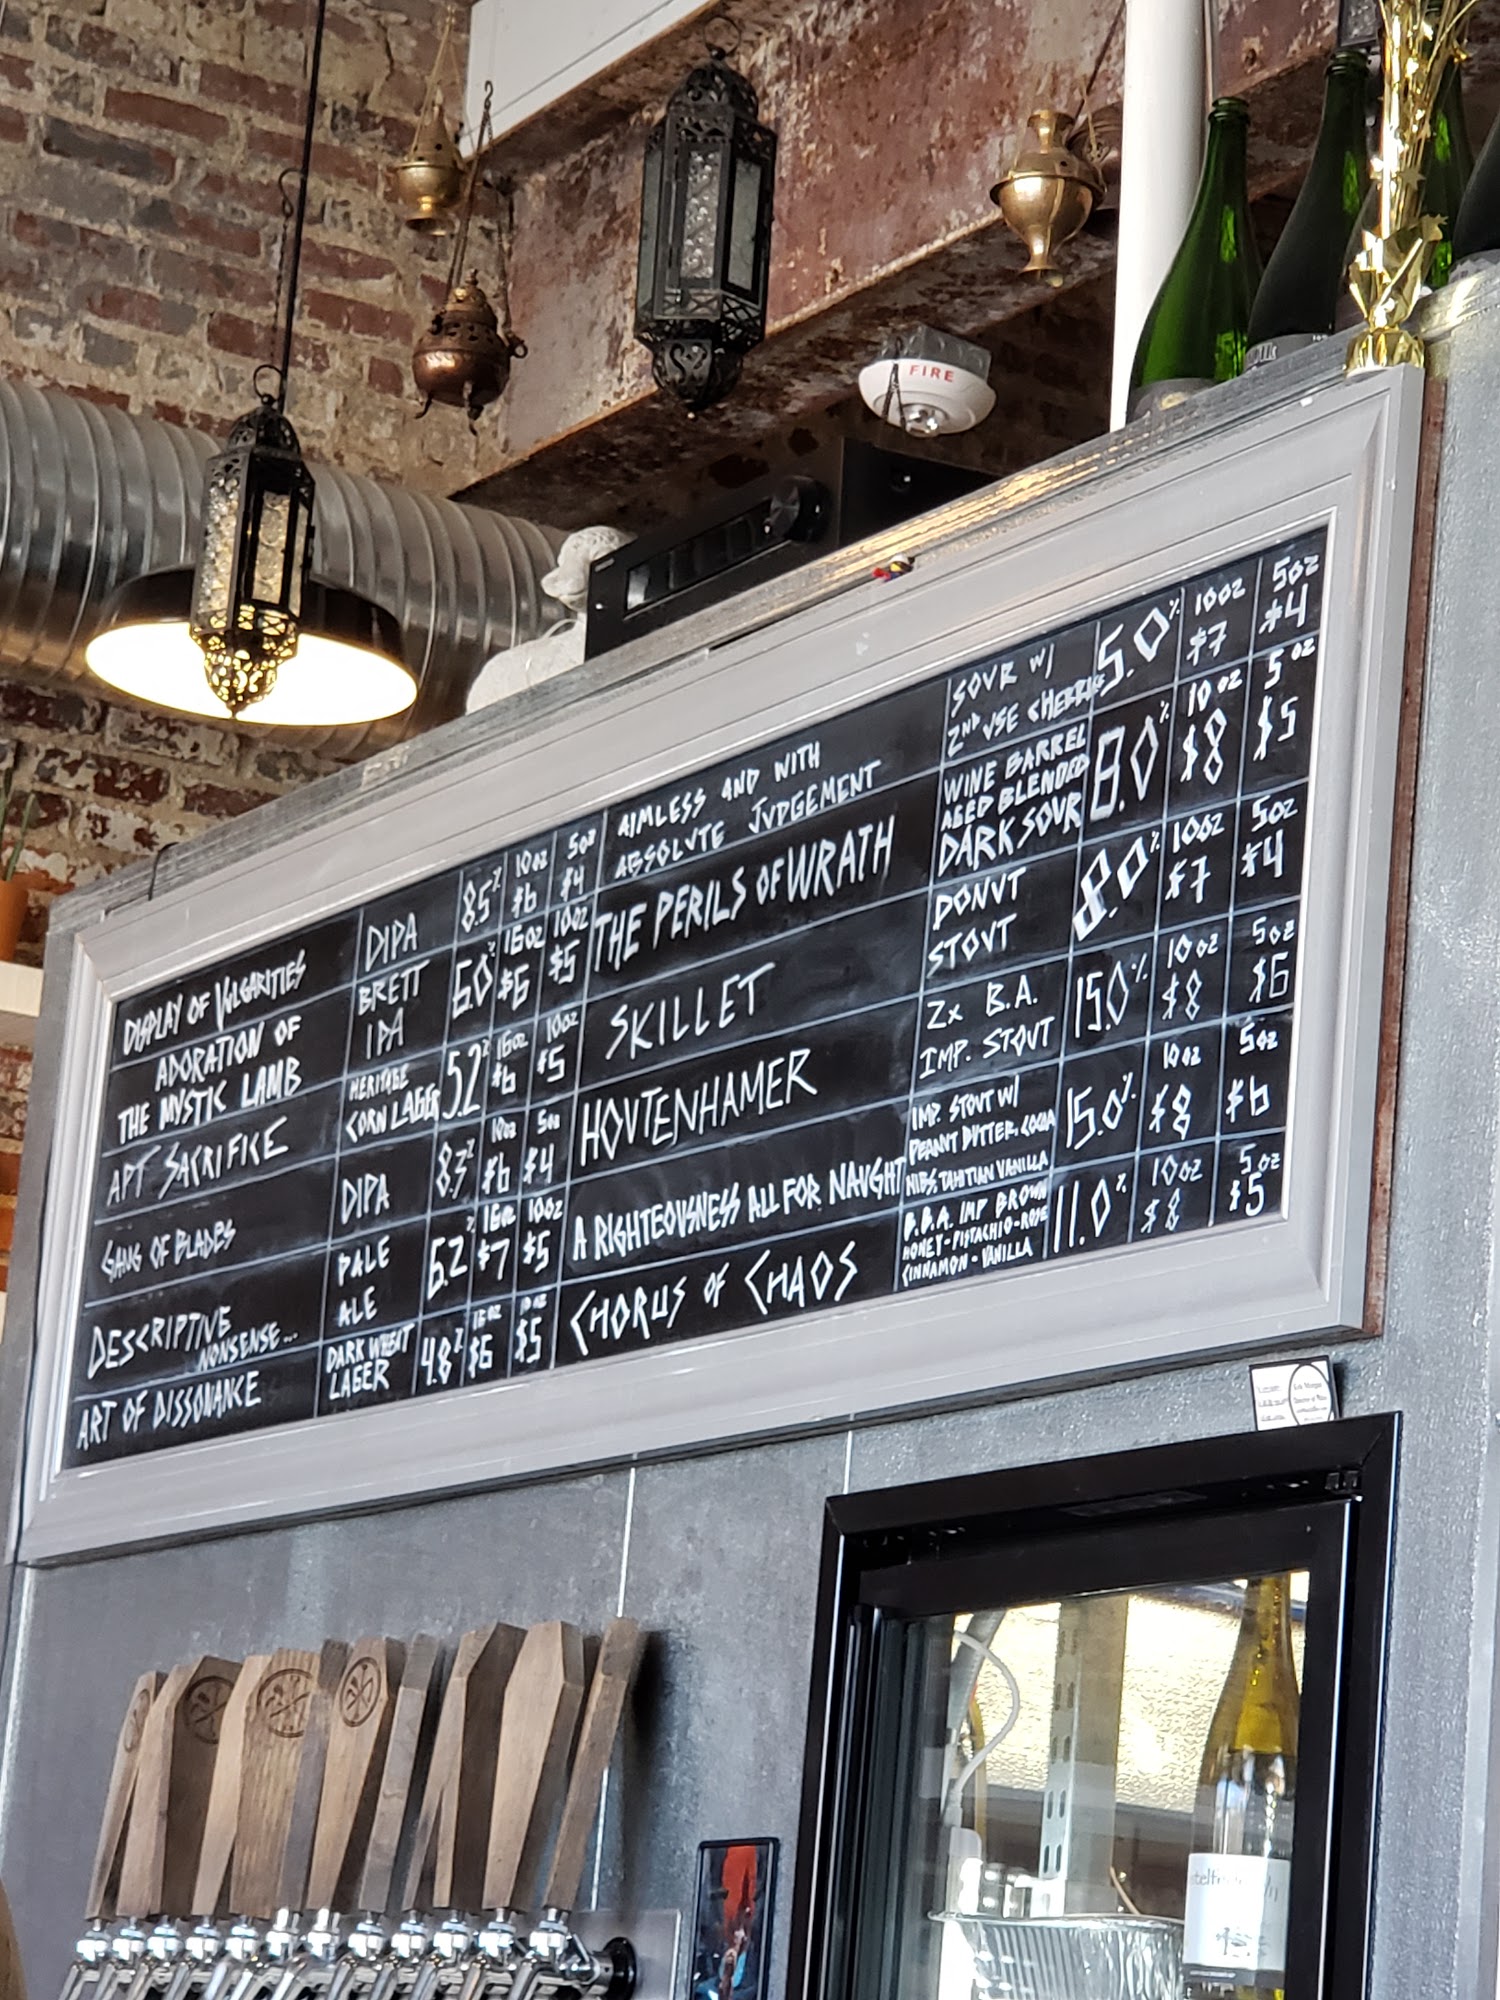 FIRE
DISPLAY OF VULGARITIES DIPA 8.5% 10oz $6 5oz $4
ADORATION OF
THE MYSTIC LAMB
BRETT
IPA
6.0% 16oz $6 10oz $5
APT SACRIFICE
HERITAGE
CORN LAGER
5.2% 16oz $6 10oz $5
GANG OF BLADES DIPA 8.3% 10oz $6 5oz $4
DESCRIPTIVE
NONSENSE...
PALE
ALE
6.2% 16oz $7 10oz $5
ART OF DISSONANCE
DARK WHEAT
LAGER
4.8% 16oz $6 10oz $5
AIMLESS AND WITH
ABSOLUTE JUDGEMENT
SOUR W/
2ND USE CHERRIES
5.0% 10oz $7 5oz $4
THE PERILS OF WRATH
WINE BARREL
AGED BLENDED
DARK SOUR
8.0% 10oz $8 5oz $5
SKILLET
DONUT
STOUT
8.0% 10oz $7 5oz $4
HOUTENHAMER
2x B.A.
IMP. STOUT
15.0% 10oz $8 5oz $6
A RIGHTEOUSNESS ALL FOR NAUGHT
IMP. STOUT W/
PEANUT BUTTER, COCOA
NIBS, TAHITIAN VANILLA
15.0% 10oz $8 5oz $6
CHORUS OF CHAOS
B.B.A. IMP BROWN
HONEY-PISTACHIO-ROSE
CINNAMON-VANILLA
11.0% 10oz $8 5oz $5